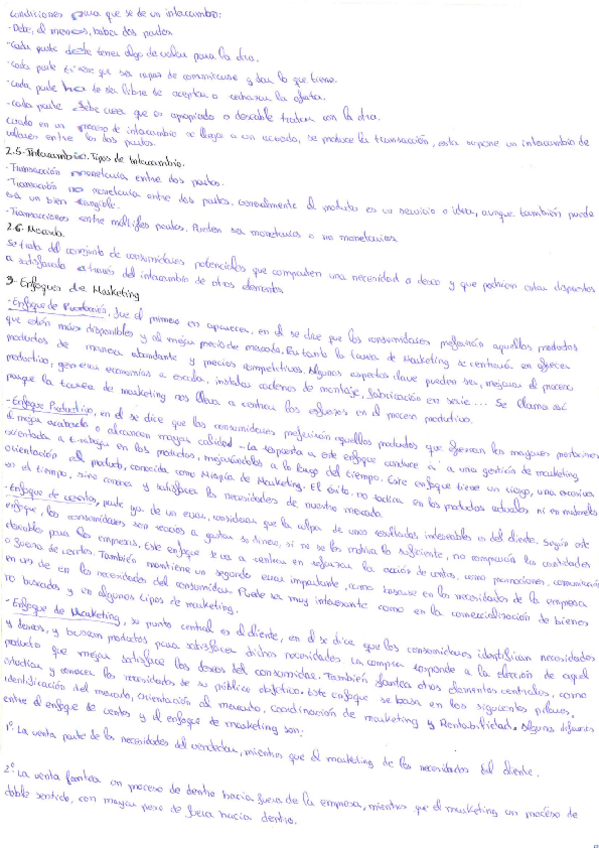 Condiciones para que se de un intercambio:
- Debe, al menos, haber dos partes.
- Cada parte debe tener algo de valor para la otra.
- Cada parte tiene que ser capaz de comunicarse y dar lo que tiene.
- Cada parte ha de ser libre de aceptar o rechazar la oferta.
- Cada parte debe creer que es apropiado o deseable tratar con la otra.
Cuando en un proceso de intercambio se llega a un acuerdo, se produce la transacción, esta supone un intercambio de
valores entre las dos partes.
2.5- Intercambio. Tipos de Intercambio.
- Transacción monetaria entre dos partes.
- Transacción no monetaria entre dos partes. Generalmente el producto es un servicio o idea, aunque también puede
ser un bien tangible.
- Transacciones entre múltiples partes. Pueden ser monetarias o no monetarias.
2.6- Mercado.
Se trata del conjunto de consumidores potenciales que comparten una necesidad o deseo y que podrían estar dispuestos
a satisfacerlo a través del intercambio de otros elementos.
3- Enfoques de Marketing
- Enfoque de Producción, fue el primero en aparecer, en él se dice que los consumidores preferirán aquellos productos
que estén más disponibles y al mejor precio de mercado. Por tanto la tarea de Marketing se centrará en ofrecer
productos de manera abundante y precios competitivos. Algunos aspectos clave pueden ser, mejorar el proceso
productivo, generar economías a escala, instalar cadenas de montaje, fabricación en serie... Se llama así
porque la tarea de marketing nos lleva a centrar los esfuerzos en el proceso productivo.
- Enfoque Producto, en él se dice que los consumidores preferirán aquellos productos que ofrezcan las mayores prestaciones,
el mejor acabado o alcancen mayor calidad - La respuesta a este enfoque conduce a a una gestión de marketing
orientada a trabajar en los productos, mejorándolos a lo largo del tiempo. Este enfoque tiene un riesgo, una excesiva
orientación al producto, conocida como Miopía de Marketing. El éxito no radica en los productos actuales ni en mantenerlos
en el tiempo, sino conocer y satisfacer las necesidades de nuestro mercado.
- Enfoque de ventas, parte ya de un error, considerar que la culpa de unos resultados indeseables es del cliente. Según este
enfoque, los consumidores son reacios a gastar su dinero, si no se les motiva lo suficiente, no comprarán las cantidades
deseables para las empresas. Este enfoque se va a centrar en reforzar la acción de ventas, como promociones, comunicación
o fuerza de ventas. También mantiene un segundo error importante, como basarse en las necesidades de la empresa
en vez de en las necesidades del consumidor. Puede ser muy interesante como en la comercialización de bienes
no buscados y en algunos tipos de marketing.
- Enfoque de Marketing, su punto central es el cliente, en él se dice que los consumidores identifican necesidades
y deseos, y buscan productos para satisfacer dichas necesidades. La compra responde a la elección de aquel
producto que mejor satisface los deseos del consumidor. También plantea otros elementos centrales, como
estudiar y conocer las necesidades de su público objetivo. Este enfoque se basa en los siguientes pilares,
Identificación del mercado, Orientación al mercado, Coordinación de marketing y Rentabilidad. Algunas diferencias
entre el enfoque de ventas y el enfoque de marketing son:
1º. La venta parte de las necesidades del vendedor, mientras que el marketing de las necesidades del cliente.
2º. La venta plantea un proceso de dentro hacia fuera de la empresa, mientras que el marketing un proceso de
doble sentido, con mayor peso de fuera hacia dentro.